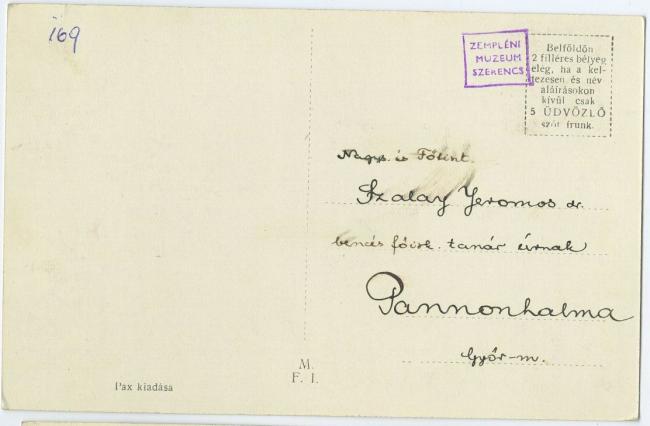 i69
ZEMPLÉNI
MUZEUM
SZERENCS
Belföldön
2 filléres bélyeg
elég, ha a kel-
tezésen és név
aláírásokon
kívül csak
5 ÜDVÖZLŐ
szót írunk.
Nagys. és Főtint.
Szalay Jeromos dr.
bencés főisk. tanár úrnak
Pannonhalma
Győr-m.
M.
F. I.
Pax kiadása